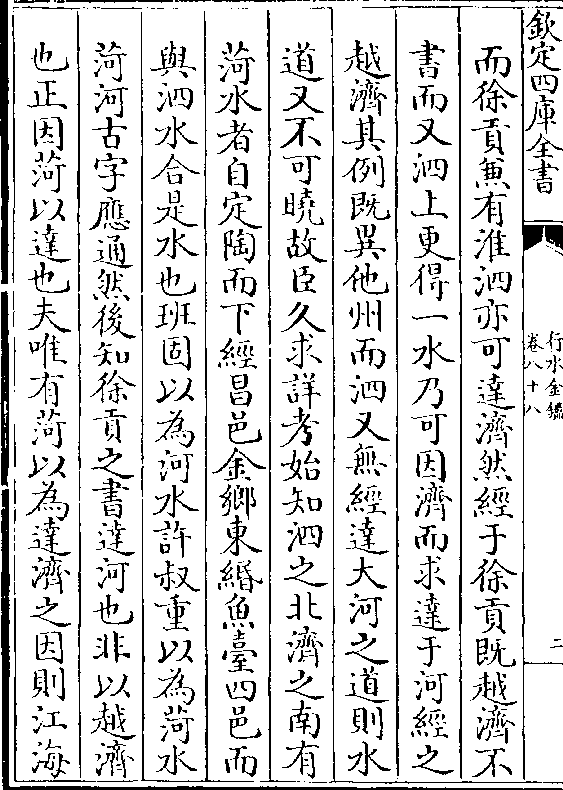 欽定四庫全書
行水金鑑
卷八十八
二
而徐貢兼有淮泗亦可達濟然經于徐貢既越濟不
書而又泗上更得一水乃可因濟而求達于河經之
越濟其例既異他州而泗又無經達大河之道則水
道又不可曉故臣久求詳考始知泗之北濟之南有
菏水者自定陶而下經昌邑金鄉東緡魚臺四邑而
與泗水合是水也班固以為河水許叔重以為菏水
菏河古字應通然後知徐貢之書達河也非以越濟
也正因菏以達也夫唯有菏以為達濟之因則江海